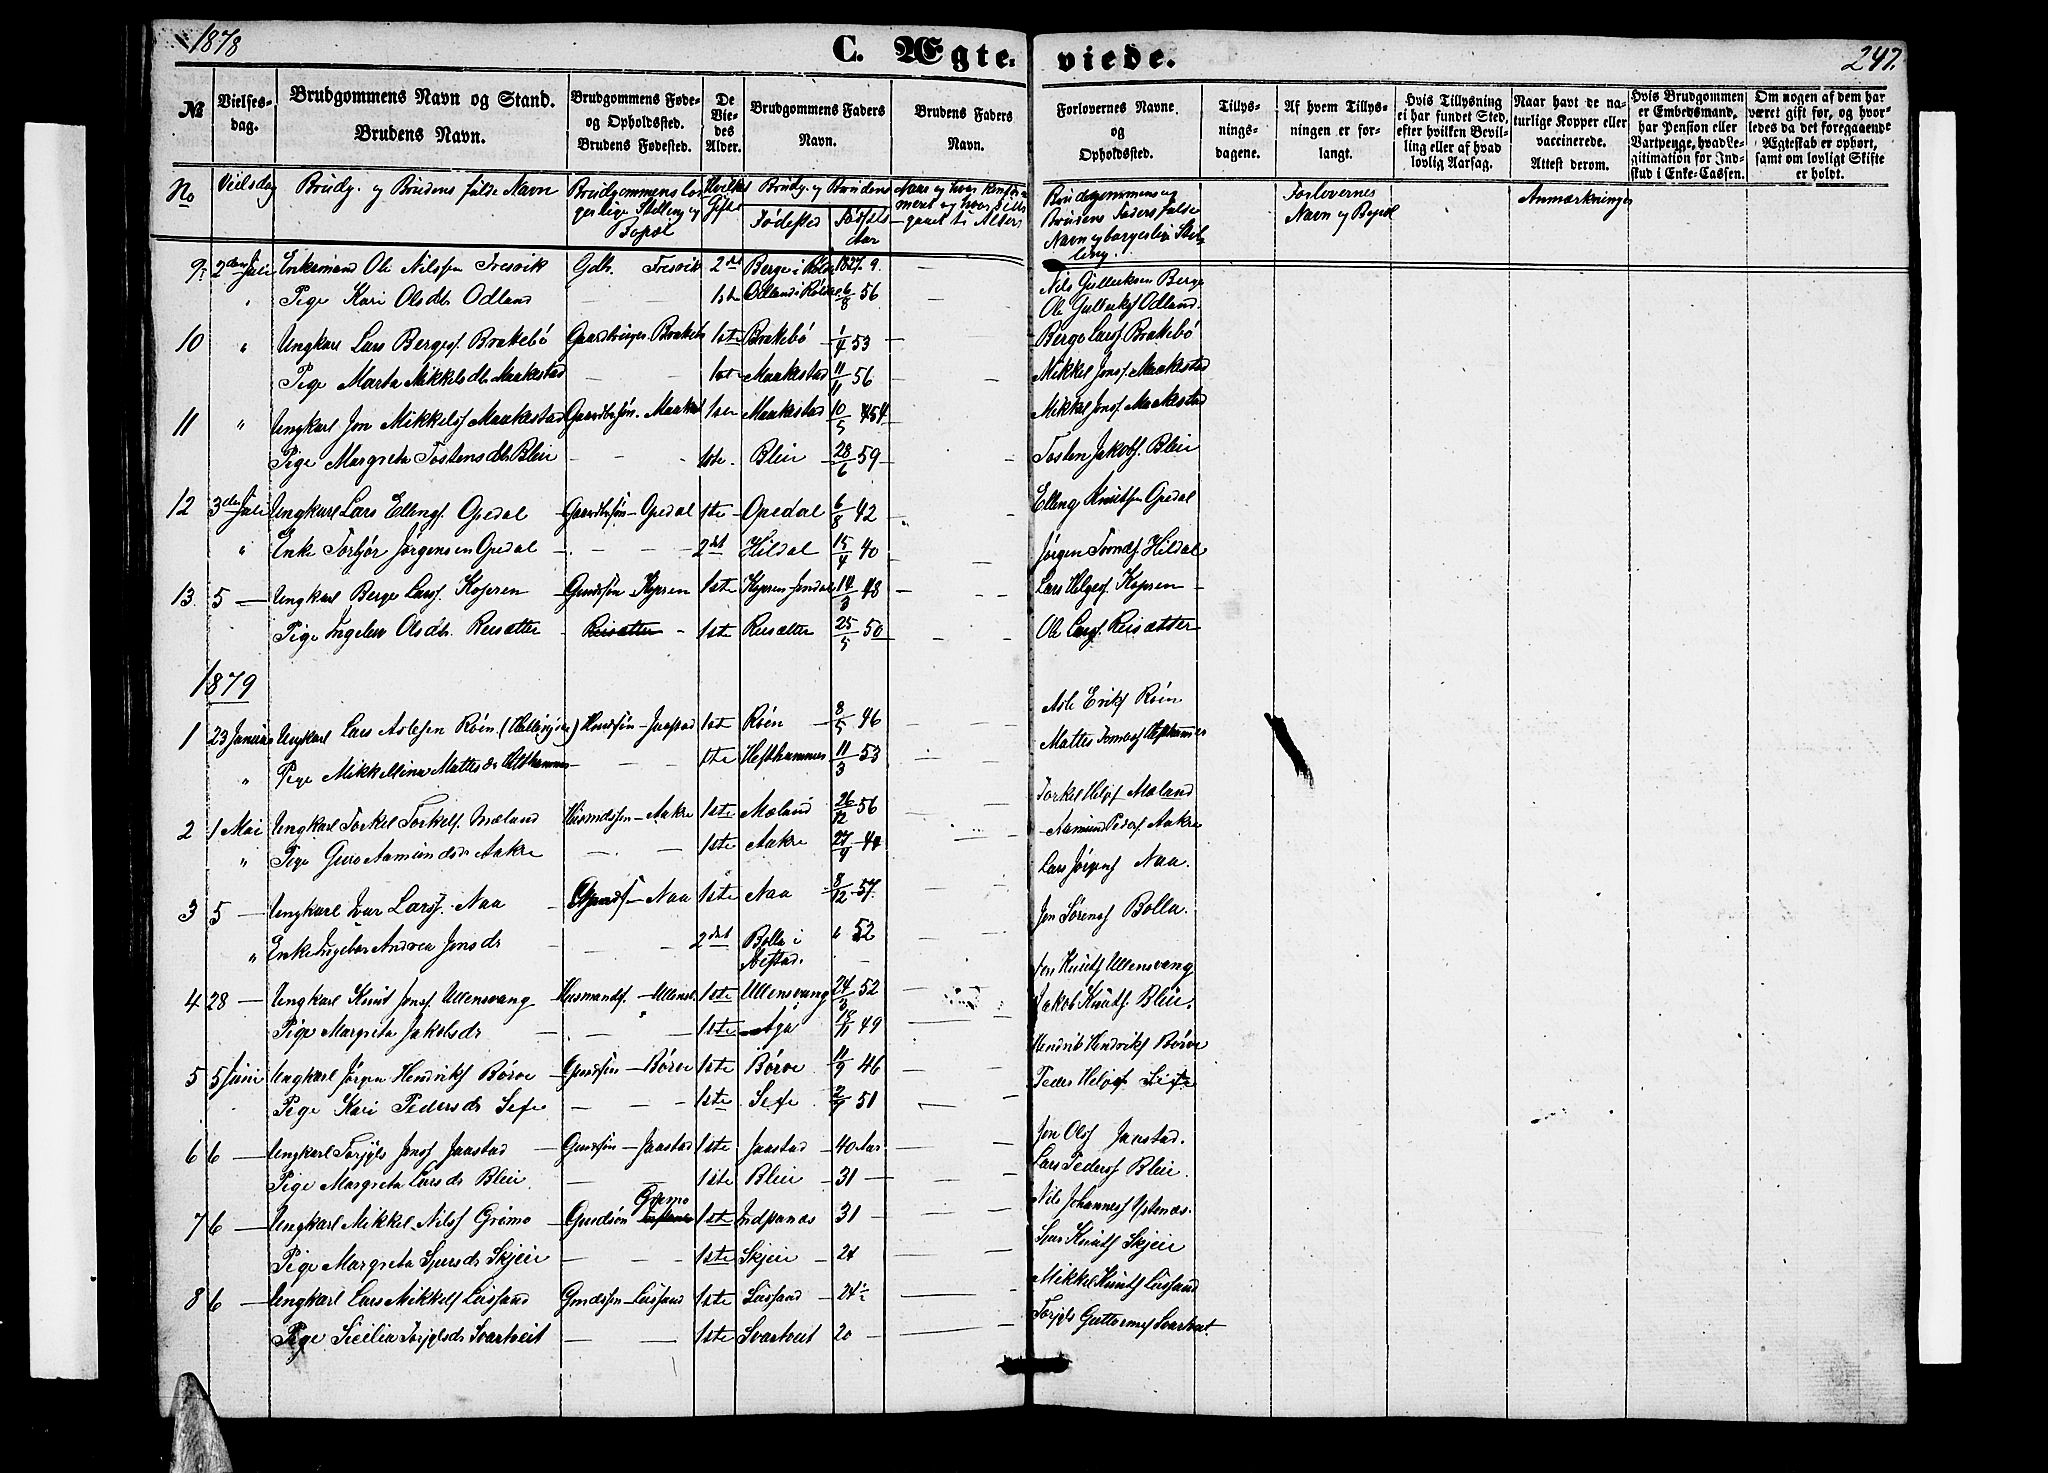 1878
C. Ægte- viede.
247.
№
Vielses-dag.
Brudgommens Navn og Stand.
Brudens Navn.
Brudgommens Føde- og Opholdssted.
Brudens Fødested.
De Viedes Alder.
Brudgommens Faders Navn.
Brudens Faders Navn.
Forlovernes Navne. og Opholdssted.
Tillysningsdagene.
Af hvem Tillysningen er forlangt.
Hvis Tillysning ei har fundet Sted, efter hvilken Bevilling eller af hvad lovlig Aarsag.
Naar havt de naturlige Kopper eller vaccinerede. Attest derom.
Hvis Brudgommen er Embedsmand, har Pension eller Vartpenge, hvad Legitimation for Indstud i Enke-Cassen.
Om nogen af dem har været gift før, og hvorledes da det foregaaende Ægteskab er ophørt, samt om lovligt Skifte er holdt.
No Vielsdag Brudg. og Brudens fulde Navn Brudgommens borgerlige Stilling og Bopæl Hvilket Gifte Brudg. og Brudens Fødested Fødsels Aar
Brudgommens og Brudens Faders fulde Navn og borgerlige Stilling.
Forlovernes Navn og Bopæl
Anmærkninger
9. 2den Juli Enkemand Ole Nilssen Tresvik Gdb. Tresvik 2det Berge i Røldal 1827. 9. Nils Gulleiksen Berge
" Pige Kari Olsdtr Odland 1ste Odland i Røldal 6/8 56 Ole Gulleiksf Odland.
10 " Ungkarl Lars Bergesf. Brattebø Gaardbruger Brattebø 1ste Brattebø 1/4 53 Berge Larsf Brattebø
Pige Marta Mikkelsdtr Maakestad 1ste Maakestad 11/11 56 Mikkel Jonsf Maakestad
11 " Ungkarl Jon Mikkelsf Maakestad Gaardbrsøn. Maakest 1ste Maakestad 10/5 454 Mikkel Jonsf Maakestad
Pige Margreta Tostensdtr Bleie 1ste Bleie 28/6 59 Tosten Jakobsf. Bleie
12 3die Juli Ungkarl Lars Ellingsf. Opedal Gaardbrsøn - Opedal 1ste Opedal 6/8 42 Elling Knutsen Opedal
" Enke Torbjør Jørgensen Opedal 2det Hildal 15/4 40 Jørgen Hildal
13. 5 — Ungkarl Berge Larsf. Kopren Gaardsøn - Kopren 1ste Kopren Jondal 14/3 48 Lars Helgesf. Kopren
Pige Ingebor Olsdtr. Reisætter Reisætter 1ste Reisætter 25/5 50 Ole Larsf. Reisætter
1879
1 23 Januar Ungkarl Lars Aslesen Roen (Hallingdal) Husmdsøn - Jaastad 1ste Roen 8/5 46 Asle Eriksf Roen
" Pige Mikkellina Mattesdr Hesthammer 1ste Hesthammer 11/3 53 Mattes Hesthammer
2 1 Mai Ungkarl Torkel Torkelsf. Mæland Husmdsøn - Aakre 1ste Mæland 26/12 56 Torkel Helgesf Mæland
" Pige Guro Aamundsdr Aakre 1ste Aakre 27/9 44 Aamund Pedersf Aakre
3 5 — Ungkarl Ivar Larsf. Naa Gaardsf - Naa 1ste Naa 8/12 57. Lars Jørgensf Naa.
" Enke Ingebor Andrea Jonsdr 2det Bolla i 52 Jon Sørensf Bolla.
4 28 — Ungkarl Knut Jonsf Ullensvang Husmandsf. - Ullensv. 1ste Ullensvang 24/3 52 Jon Knutsf Ullensvang
Pige Margreta Jakobsdr 1ste Aga 18/11 49 Jakob Knutsf. Bleie.
5 5 Juni Ungkarl Jørgen Henriksf Børve Gaardsøn - Børve 1ste Børve 11/9 46 Hendrik Hendriksf Børve
Pige Kari Pedersdr Sexe 1ste Sexe 2/9 51 Peder Helgesf. Sexe
6 6 — Ungkarl Torgils Jonsf Jaastad Gaardsøn - Jaastad 1ste Jaastad 40 Aar Jon Olsf Jaastad.
Pige Margreta Larsdr Bleie 1ste Bleie 31 Lars Pedersf Bleie.
7 6 — Ungkarl Mikkel Nilsf Grimo Gaardsøn Grimo 1ste Indstanæs 31 Nils Johannesf
Pige Margreta Sjursdr Skjeie 1ste Skjeie 24 Sjur Knutsf Skjeie
8 6 — Ungkarl Lars Mikkelsf Lussand Gaardsøn - Lussand 1ste Lussand 24 1/2 Mikkel Knutsf Lussand
Pige Sicilia Torgilsdr Svartveit 1ste Svartveit 20 Torgils Guttormsf Svartveit.